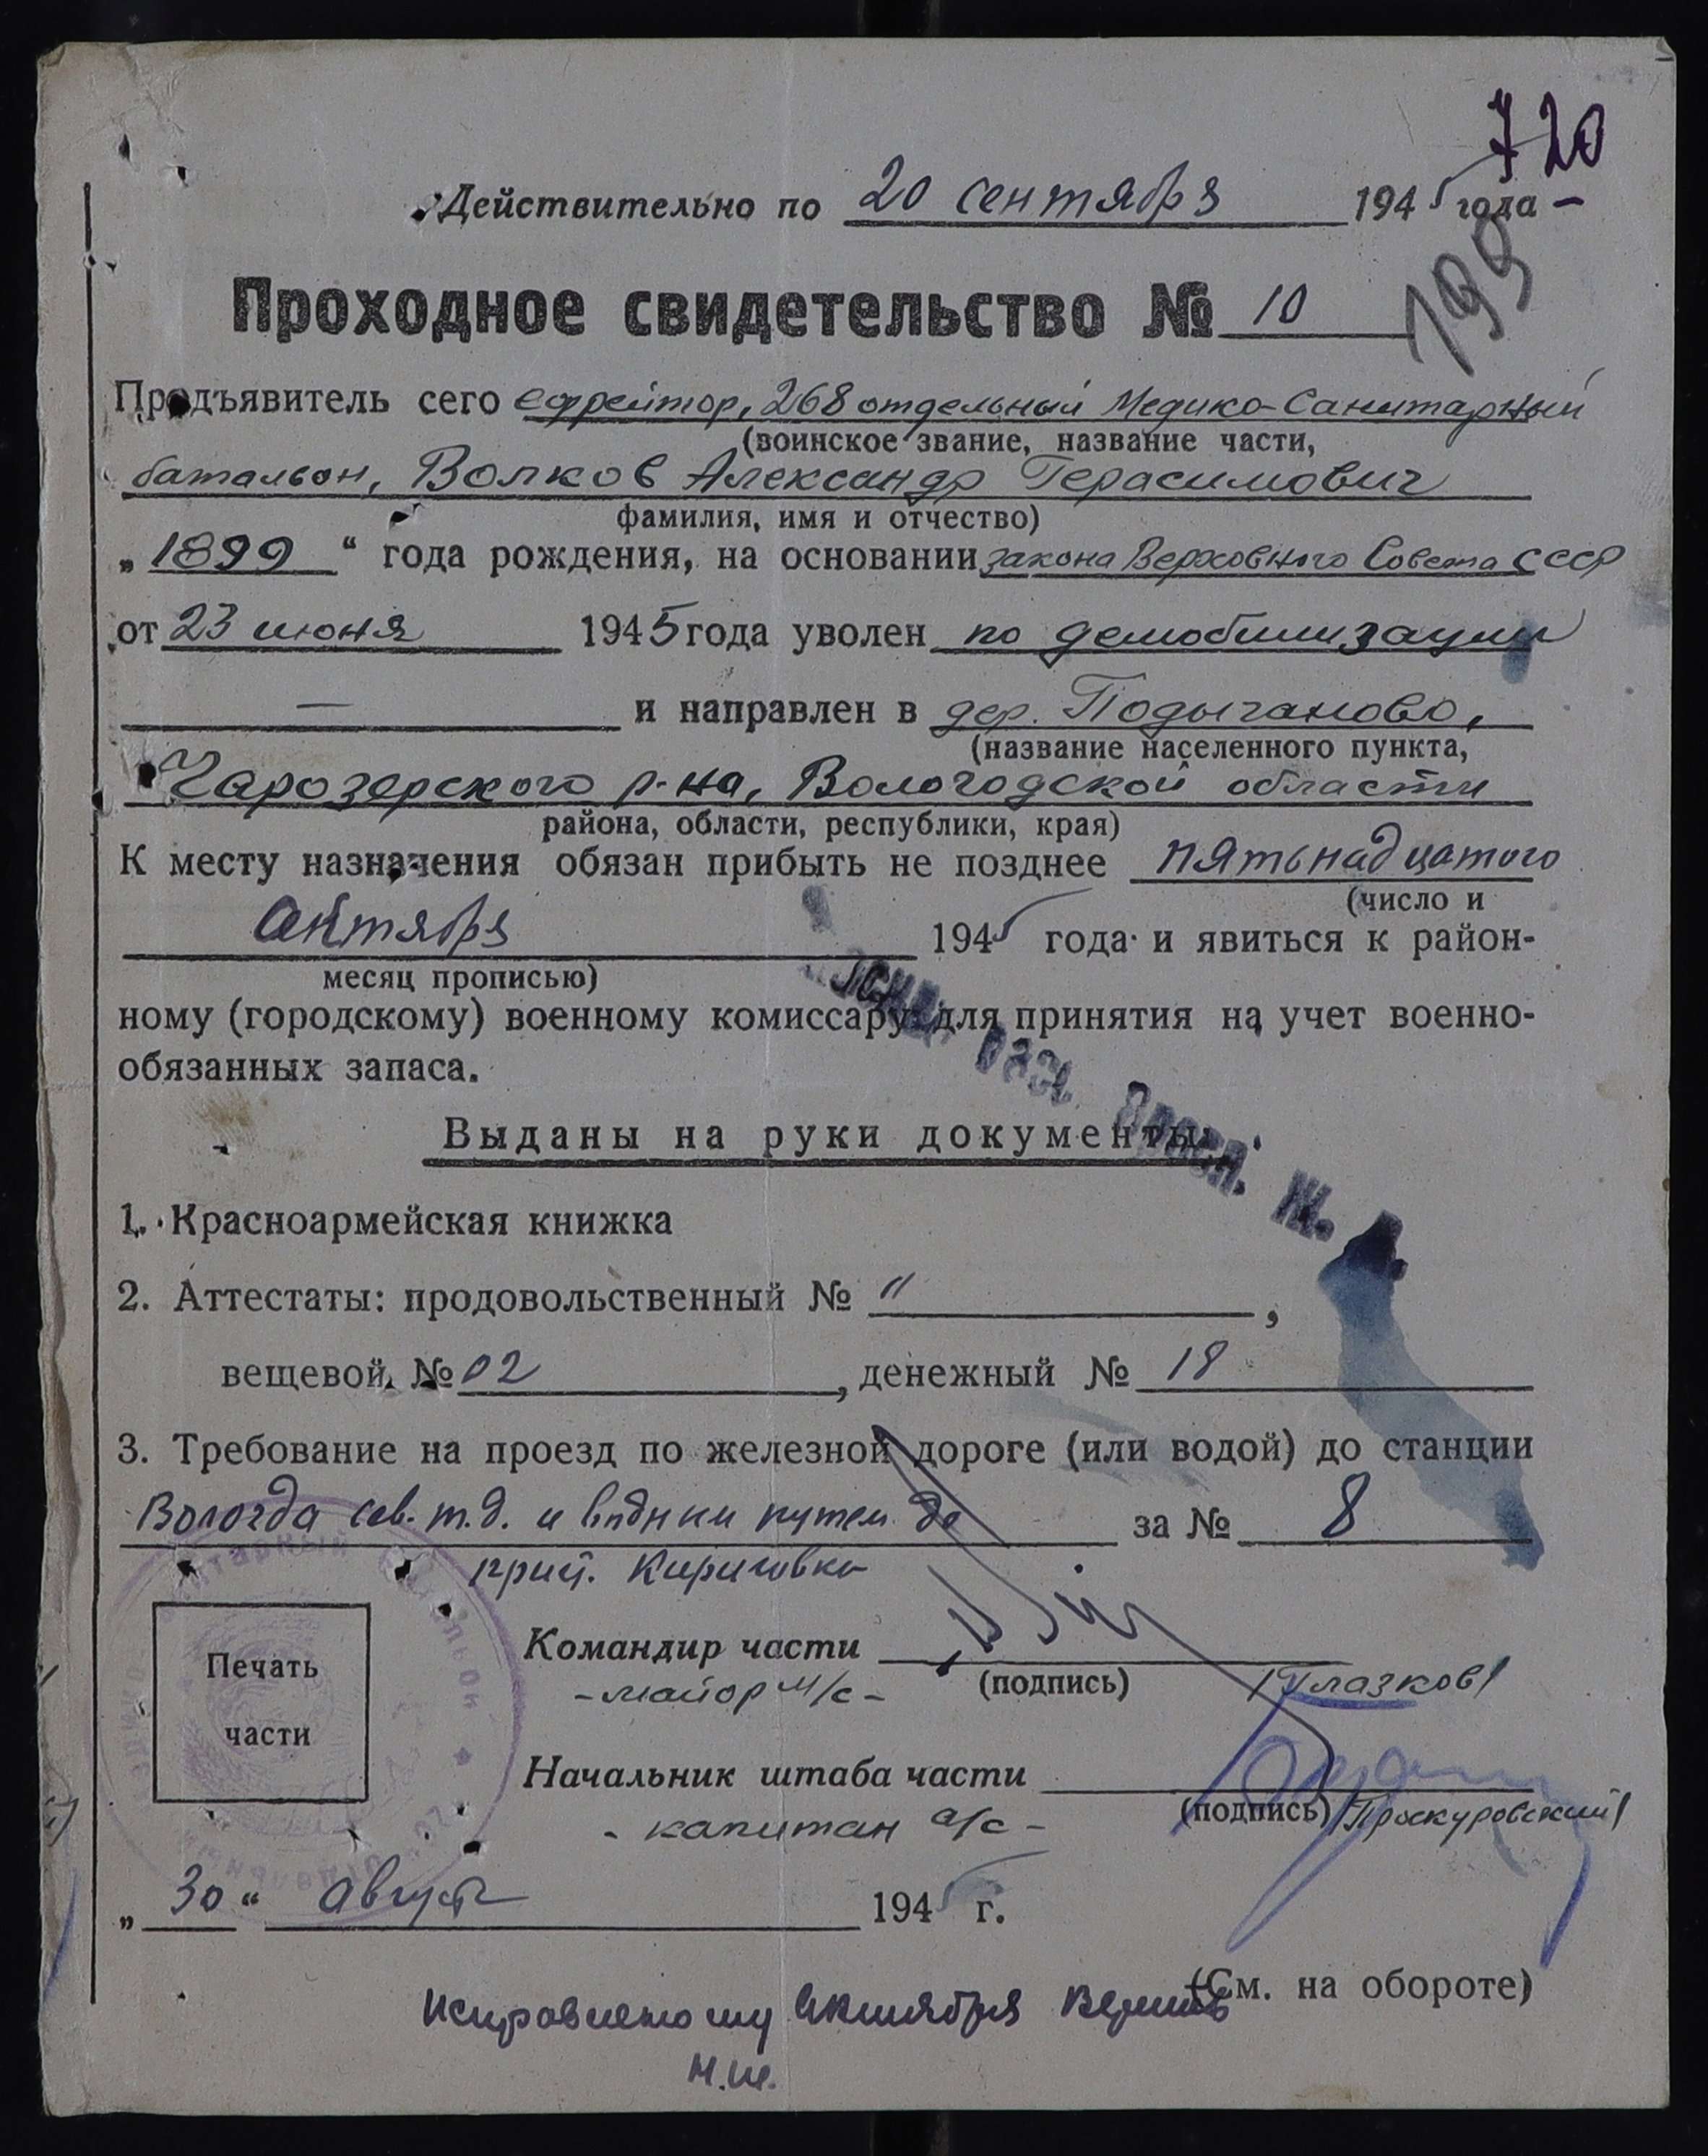 720
Действительно по 20 сентября 1945 года
199
Проходное свидетельство № 10
Предъявитель сего ефрейтор, 268 отдельный Медико-Санитарный
(воинское звание, название части,
батальон, Волков Александр Герасимович
фамилия, имя и отчество)
„1899“ года рождения, на основании закона Верховного Совета СССР
от 23 июня 1945 года уволен по демобилизации
— и направлен в дер. Подыганово,
(название населенного пункта,
Чарозерского р-на, Вологодской области
района, области, республики, края)
К месту назначения обязан прибыть не позднее пятьнадцатого
(число и
октября 1945 года и явиться к район-
месяц прописью)
ному (городскому) военному комиссару для принятия на учет военно-
обязанных запаса.
Выданы на руки документы:
1. Красноармейская книжка
2. Аттестаты: продовольственный № 11,
вещевой № 02, денежный № 18
3. Требование на проезд по железной дороге (или водой) до станции
Вологда сев. ж.д. и водным путем до за № 8
прист.
Печать
части
Командир части
(подпись) /Глазков/
- майор м/с -
Начальник штаба части
(подпись) /Проскуровский/
- капитан а/с -
„30“ август 1945 г.
(См. на обороте)
Исправленому октября верить
Н.Ш.